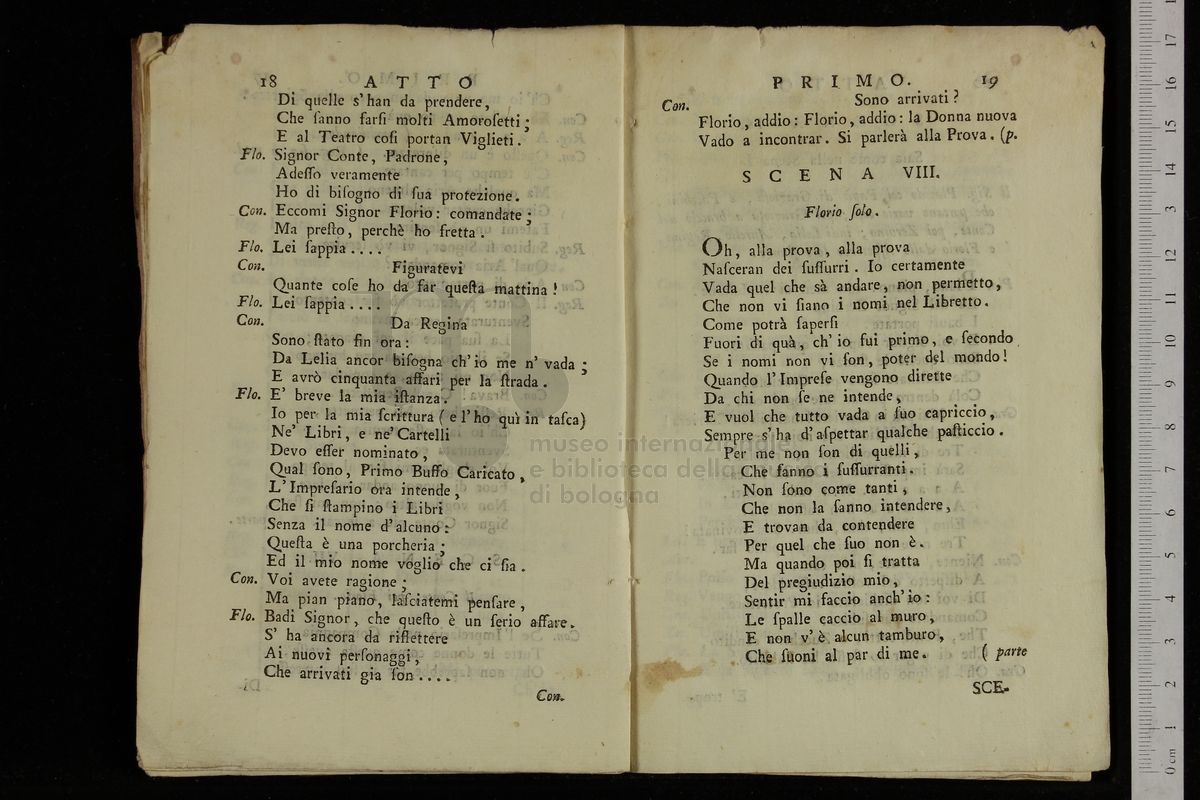 18 ATTO
Di quelle s'han da prendere,
Che ſanno farſi molti Amoroſetti;
E al Teatro coſi portan Viglieti.
Flo. Signor Conte, Padrone,
Adeſſo veramente
Ho di biſogno di ſua protezione.
Con. Eccomi Signor Florio: comandate;
Ma preſto, perchè ho fretta.
Flo. Lei ſappia....
Con. Figuratevi
Quante coſe ho da far queſta mattina!
Flo. Lei ſappia....
Con. Da Regina
Sono ſtato fin ora:
Da Lelia ancor biſogna ch'io me n'vada;
E avrò cinquanta affari per la ſtrada.
Flo. E' breve la mia iſtanza.
Io per la mia ſcrittura (e l'ho quì in taſca)
Ne' Libri, e ne' Cartelli
Devo eſſer nominato,
Qual ſono, Primo Buffo Caricato,
L'Impreſario ora intende,
Che ſi ſtampino i Libri
Senza il nome d'alcuno:
Queſta è una porcheria;
Ed il mio nome voglio che ci ſia.
Con. Voi avete ragione;
Ma pian piano, laſciatemi penſare,
Flo. Badi Signor, che queſto è un ſerio affare.
S'ha ancora da riflettere
Ai nuovi perſonaggi,
Che arrivati gia ſon....
Con.
PRIMO. 19
Con. Sono arrivati?
Florio, addio: Florio, addio: la Donna nuova
Vado a incontrar. Si parlerà alla Prova. (p.
SCENA VIII.
Florio ſolo.
Oh, alla prova, alla prova
Naſceran dei ſuſſurri. Io certamente
Vada quel che sà andare, non permetto,
Che non vi ſiano i nomi nel Libretto.
Come potrà ſaperſi
Fuori di quà, ch'io fui primo, e ſecondo
Se i nomi non vi ſon, poter del mondo!
Quando l'Impreſe vengono dirette
Da chi non ſe ne intende,
E vuol che tutto vada a ſuo capriccio,
Sempre s'ha d'aſpettar qualche paſticcio.
Per me non ſon di quelli,
Che fanno i ſuſſurranti.
Non ſono come tanti,
Che non la ſanno intendere,
E trovan da contendere
Per quel che ſuo non è.
Ma quando poi ſi tratta
Del pregiudizio mio,
Sentir mi faccio anch'io:
Le ſpalle caccio al muro,
E non v'è alcun tamburo,
Che ſuoni al par di me. (parte
SCE-
museo internazionale
e biblioteca della
di bologna